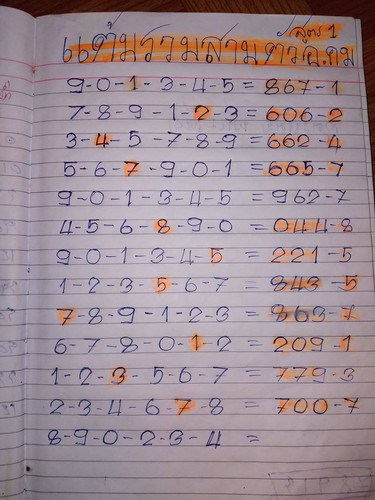 สูตร 1
แต้มรวมสามตัวฉ.คม
9-0-1-3-4-5 = 867-1
7-8-9-1-2-3 = 606-2
3-4-5-7-8-9 = 662-4
5-6-7-9-0-1 = 665-7
9-0-1-3-4-5 = 962-7
4-5-6-8-9-0 = 044-8
9-0-1-3-4-5 = 221-5
1-2-3-5-6-7 = 843-5
7-8-9-1-2-3 = 863-7
6-7-8-0-1-2 = 209-1
1-2-3-5-6-7 = 779-3
2-3-4-6-7-8 = 700-7
8-9-0-2-3-4 =